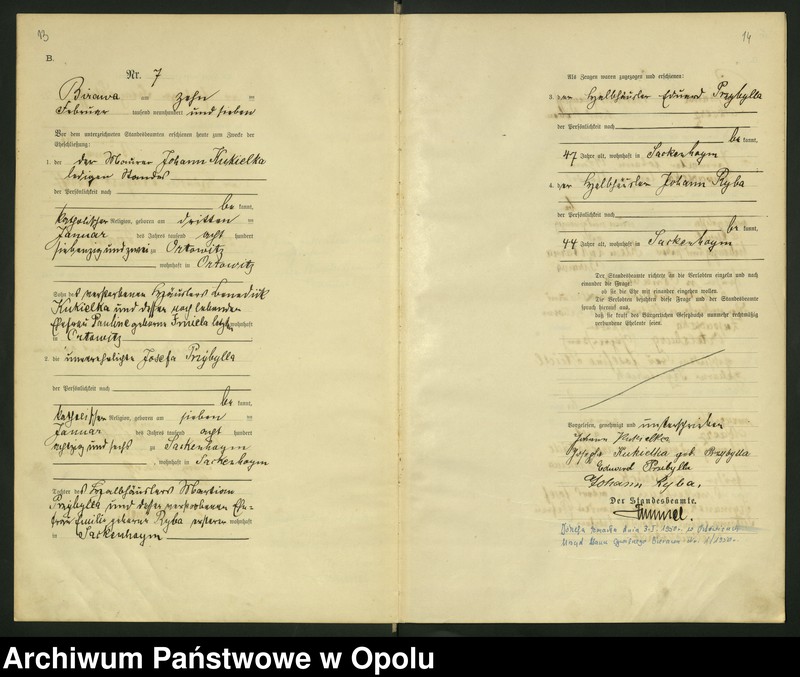 13
B.
Nr. 7
Birawa am zehn ten
Februar tausend neunhundert und sieben
Vor dem unterzeichneten Standesbeamten erschienen heute zum Zwecke der
Eheschließung:
1. der der Maurer Johann Kukielka
ledigen Standes
der Persönlichkeit nach
be kannt,
katholischer Religion, geboren am dritten ten
Januar des Jahres tausend acht hundert
siebenzig und zwei zu Ortowitz
, wohnhaft in Ortowitz
Sohn des verstorbenen Häuslers Benedikt
Kukielka und dessen noch lebenden
Ehefrau Pauline geborne letztere wohnhaft
in Ortowitz
2. die unverehelichte Josefa Przybylla
der Persönlichkeit nach
be kannt,
katholischer Religion, geboren am sieben ten
Januar des Jahres tausend acht hundert
achtzig und sechs zu Sackenhoym
, wohnhaft in Sackenhoym
Tochter des Halbhäuslers Martin
Przybylla und dessen verstorbenen Ehe-
frau Emilie geborne Ryba ersterer wohnhaft
in Sackenhoym
14
Als Zeugen waren zugezogen und erschienen:
3. der Halbhäusler Eduard Przybylla
der Persönlichkeit nach
be kannt,
47 Jahre alt, wohnhaft in Sackenhoym
4. der Halbhäusler Johann Ryba
der Persönlichkeit nach
be kannt,
44 Jahre alt, wohnhaft in Sackenhoym
Der Standesbeamte richtete an die Verlobten einzeln und nach
einander die Frage:
ob sie die Ehe mit einander eingehen wollen.
Die Verlobten bejahten diese Frage und der Standesbeamte
sprach hierauf aus,
daß sie kraft des Bürgerlichen Gesetzbuchs nunmehr rechtmäßig
verbundene Eheleute seien.
Vorgelesen, genehmigt und unterschrieben
Johann Kukielka
Josefa Kukielka geb. Przybylla
Eduard Przybylla
Johann Ryba.
Der Standesbeamte.
Józefa zmarła dnia
Urząd Stanu Cywilnego
Archiwum Państwowe w Opolu